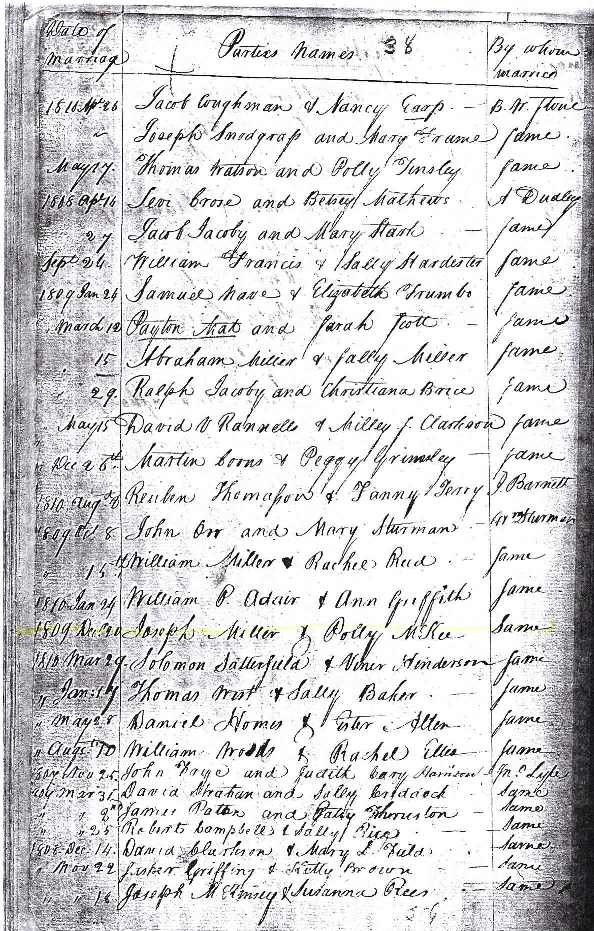 Date of Marriage Parties Names 38 By whom married
1810 Apl 26 Jacob Coughman & Nancy Earp - B. W. Stone
" Joseph Snodgrass and Mary Frame Same
May 17. Thomas Watson and Polly Tinsley Same
1808 Apl 14 Levi Crose and Betsey Mathews A Dudley
27 Jacob Jacoby and Mary Stark - Same
Sept 24 William Francis & Sally Hardester Same
1809 Jan 26 Samuel Nave & Elizabeth Trumbo Same
March 12 Payton and Sarah Scott - Same
" 15 Abraham Miller & Sally Miller Same
" 29. Ralph Jacoby and Christiana Brice Same
" May 15 David V Rannells & Milley J. Clarkson Same
" Dec 26th Martin Coons & Peggy Grimsley - Same
1810 Aug 8 Reuben Thomasson & Fanny Terry J. Barnett
1809 Oct 8 John Orr and Mary Sturman - Wm Sturman
" 15th William Miller & Rachel Reed - Same
1810 Jan 24 William P. Adair & Ann Griffith Same
1809 Dec 20 Joseph Miller & Polly McKee Same
1810 Mar 29. Solomon Satterfield & Viner Henderson Same
" Jan: 17 Thomas West & Sally Baker - Same
" May 28 Daniel Homes & Ester Allen Same
" Augt 10 William Woods & Rachel Ellis - Same
Nov 25 John Faye and Judith Cary Harrison Jno Lyle
Mar 31 David Strahan and Sally Criddock Same
" " 2nd James Patton and Patsy Thruston Same
" " 25 Robert Campbell & Sally Rice - Same
1808 Dec. 14. David Clarkson & Mary L. Field - Same
" Nov 22 Lisher Griffing & Kitty Brown - Same
" " 18 Joseph McKinsey & Susanna Rees - Same